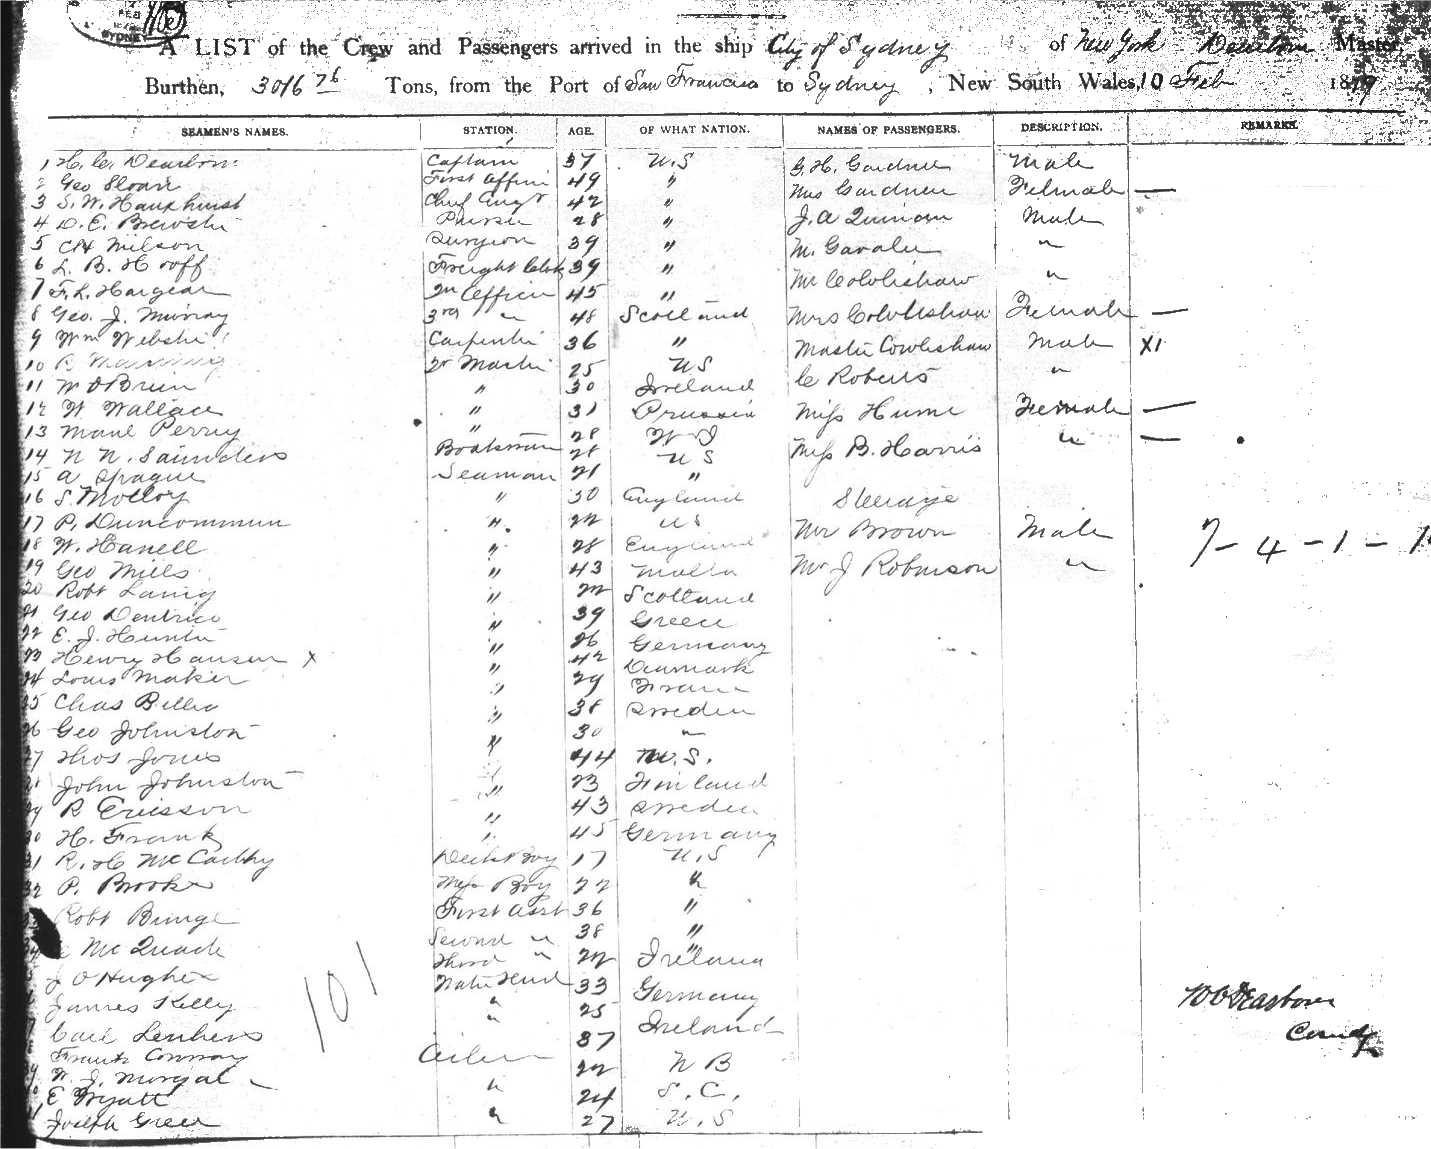 FEB
SYDNEY
A LIST of the Crew and Passengers arrived in the ship City of Sydney of New York Dearborn Master,
Burthen, 3016 76 Tons, from the Port of San Francisco to Sydney, New South Wales, 10 Feb 1879
SEAMEN'S NAMES. STATION. AGE. OF WHAT NATION. NAMES OF PASSENGERS. DESCRIPTION. REMARKS.
1 H. C. Dearborn Captain 37 U.S G. H. Gardner Male
2 Geo Sloan First Officer 49 " Mrs Gardner Female —
3 S. W. Hauxhurst Chief Engr 42 " J. A Male
4 D. E. Brewster Purser 28 "
5 Nielson Surgeon 39 " M. "
6 L. B. Hooff Freight Clerk 39 " Mr Cowlishaw "
7 F. L. 2n Officer 45 "
8 Geo. J. Murray 3rd " 48 Scotland Mrs Cowlishaw Female —
9 Wm Webster Carpenter 36 " Master Cowlishaw Male X1
10 R Manning Qr Master 25 U S C Roberts "
11 W O Brien " 30 Ireland
12 W Wallace " 31 Prussia Miss Hume Female —
13 Perry " 28 W I Miss B. Harris " —
14 N N. Saunders Boatsman 28 U S
15 A Sprague Seaman 21 "
16 S. Molloy " 30 England Steerage
17 P. Duncommun " 22 U S Mr Brown Male 7 - 4 - 1 - 1
18 W. Hanell " 28 England
19 Geo Mills " 43 Malta Mr J Robinson "
20 Robt Laing " 22 Scotland
21 Geo " 39 Greece
22 E. J. Hunter " 26 Germany
23 Henry Hansen X " 42 Denmark
24 Louis Maker " 29 France
25 Chas " 38 Sweden
26 Geo Johnston " 30 "
27 Thos Jones " 44 U.S.
28 John Johnston " 23 Finland
29 R Ericsson " 43 Sweden
30 H. Frank " 45 Germany
31 R. H McCarthy Deck Boy 17 U.S
32 P. Brooks Mess Boy 22 "
33 Robt Bunge First Asst 36 "
34 McQuade Second " 38 "
J O Hughes Third " 22 "
James Kelly Water Tend 33 Ireland
Carl " 25 Germany
Frank Conway " 37 Ireland
W. J. Morgal Oiler 22 N B
E Wyatt " 24 S. C.
41 Joseph Greer " 27 U.S
101
Dearborn
Comdg